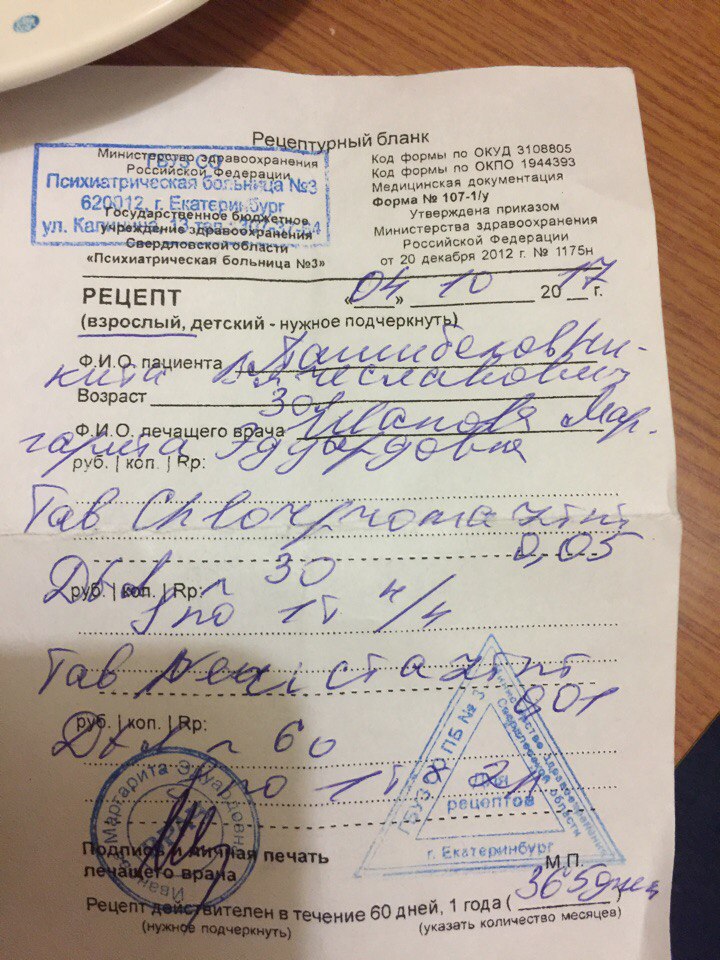 Рецептурный бланк
Министерство здравоохранения
Российской Федерации
ГБУЗ СО
Психиатрическая больница №3
620012, г. Екатеринбург
ул.
Государственное бюджетное
учреждение здравоохранения
Свердловской области
«Психиатрическая больница №3»
Код формы по ОКУД 3108805
Код формы по ОКПО 1944393
Медицинская документация
Форма № 107-1/у
Утверждена приказом
Министерства здравоохранения
Российской Федерации
от 20 декабря 2012 г. № 1175н
РЕЦЕПТ «04» 10 2017 г.
(взрослый, детский - нужное подчеркнуть)
Ф.И.О. пациента Ни-
кита Вячеславович
Возраст 30
Ф.И.О. лечащего врача Иванова Мар-
гарита Эдуардовна
руб. | коп. | Rp:
Таб
0,05
30
руб. | коп. | Rp:
по 1т н/ч
Таб
0,01
руб. | коп. | Rp:
60
по 1т 2р
ГБУЗ СО ПБ № 3
Министерство здравоохранения
Свердловской области
Для
рецептов
г. Екатеринбург
Маргарита Эдуардовна
Подпись и личная печать
лечащего врача
М.П.
Рецепт действителен в течение 60 дней, 1 года (365 дней)
(нужное подчеркнуть) (указать количество месяцев)